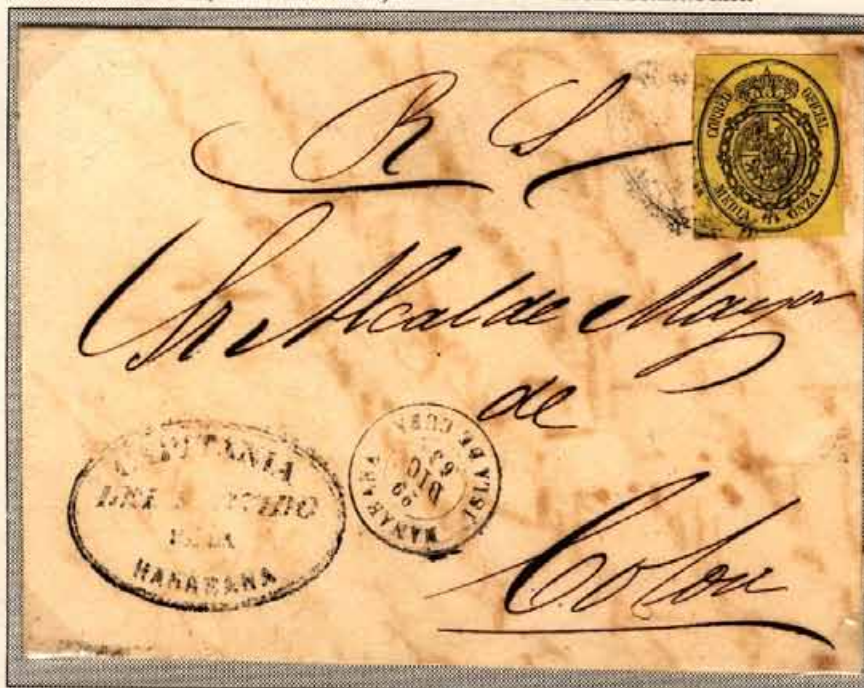 CORREO OFICIAL.
MEDIA ONZA.
R S
Sr Alcalde Mayor
de
Colon
CAPITANIA
DEL PARTIDO
DE LA
HANABANA
HANABANA
29
DIC
63
ISLA DE CUBA